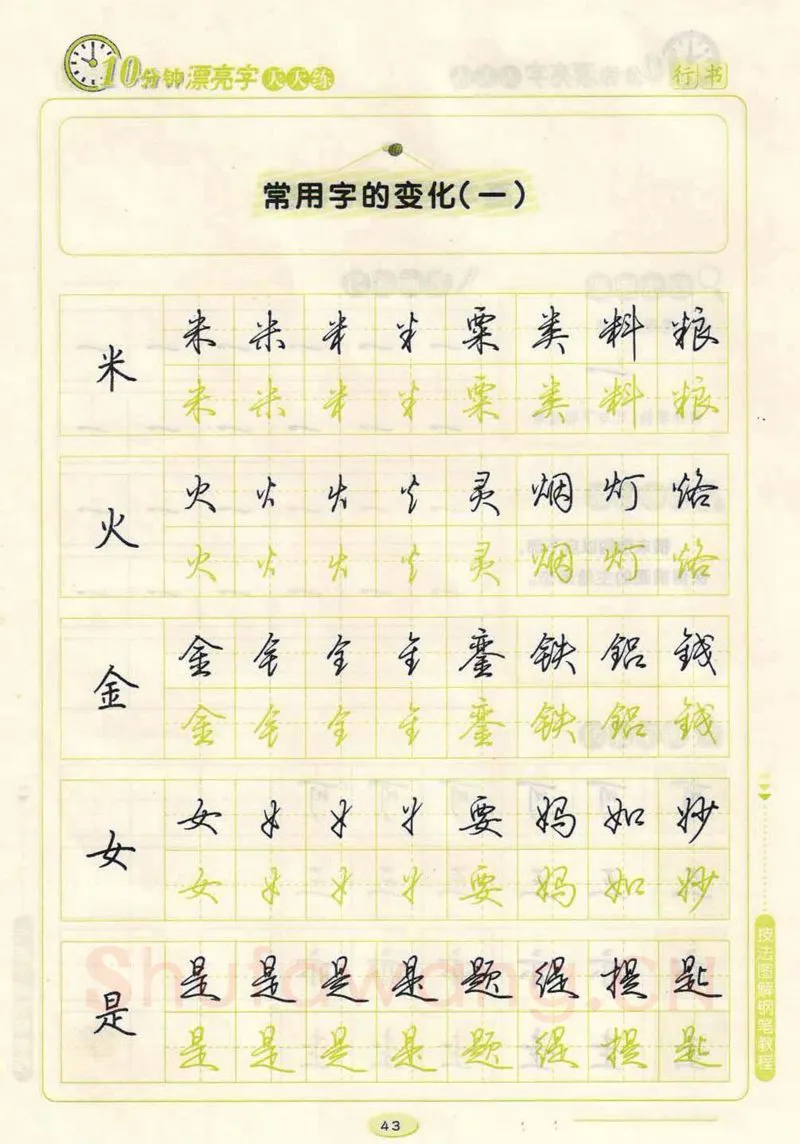 10分钟漂亮字天天练
行书
常用字的变化(一)
米 米 米 米 米 粟 类 料 粮
米 米 米 米 粟 类 料 粮
火 火 火 火 火 灵 烟 灯 烙
火 火 火 火 灵 烟 灯 烙
金 金 钅 金 金 銮 铁 铝 钱
金 钅 金 金 銮 铁 铝 钱
女 女 女 女 女 要 妈 如 妙
女 女 女 女 要 妈 如 妙
是 是 是 是 是 题 缇 提 匙
是 是 是 是 题 缇 提 匙
Shufawang.cn
技法图解钢笔教程
43